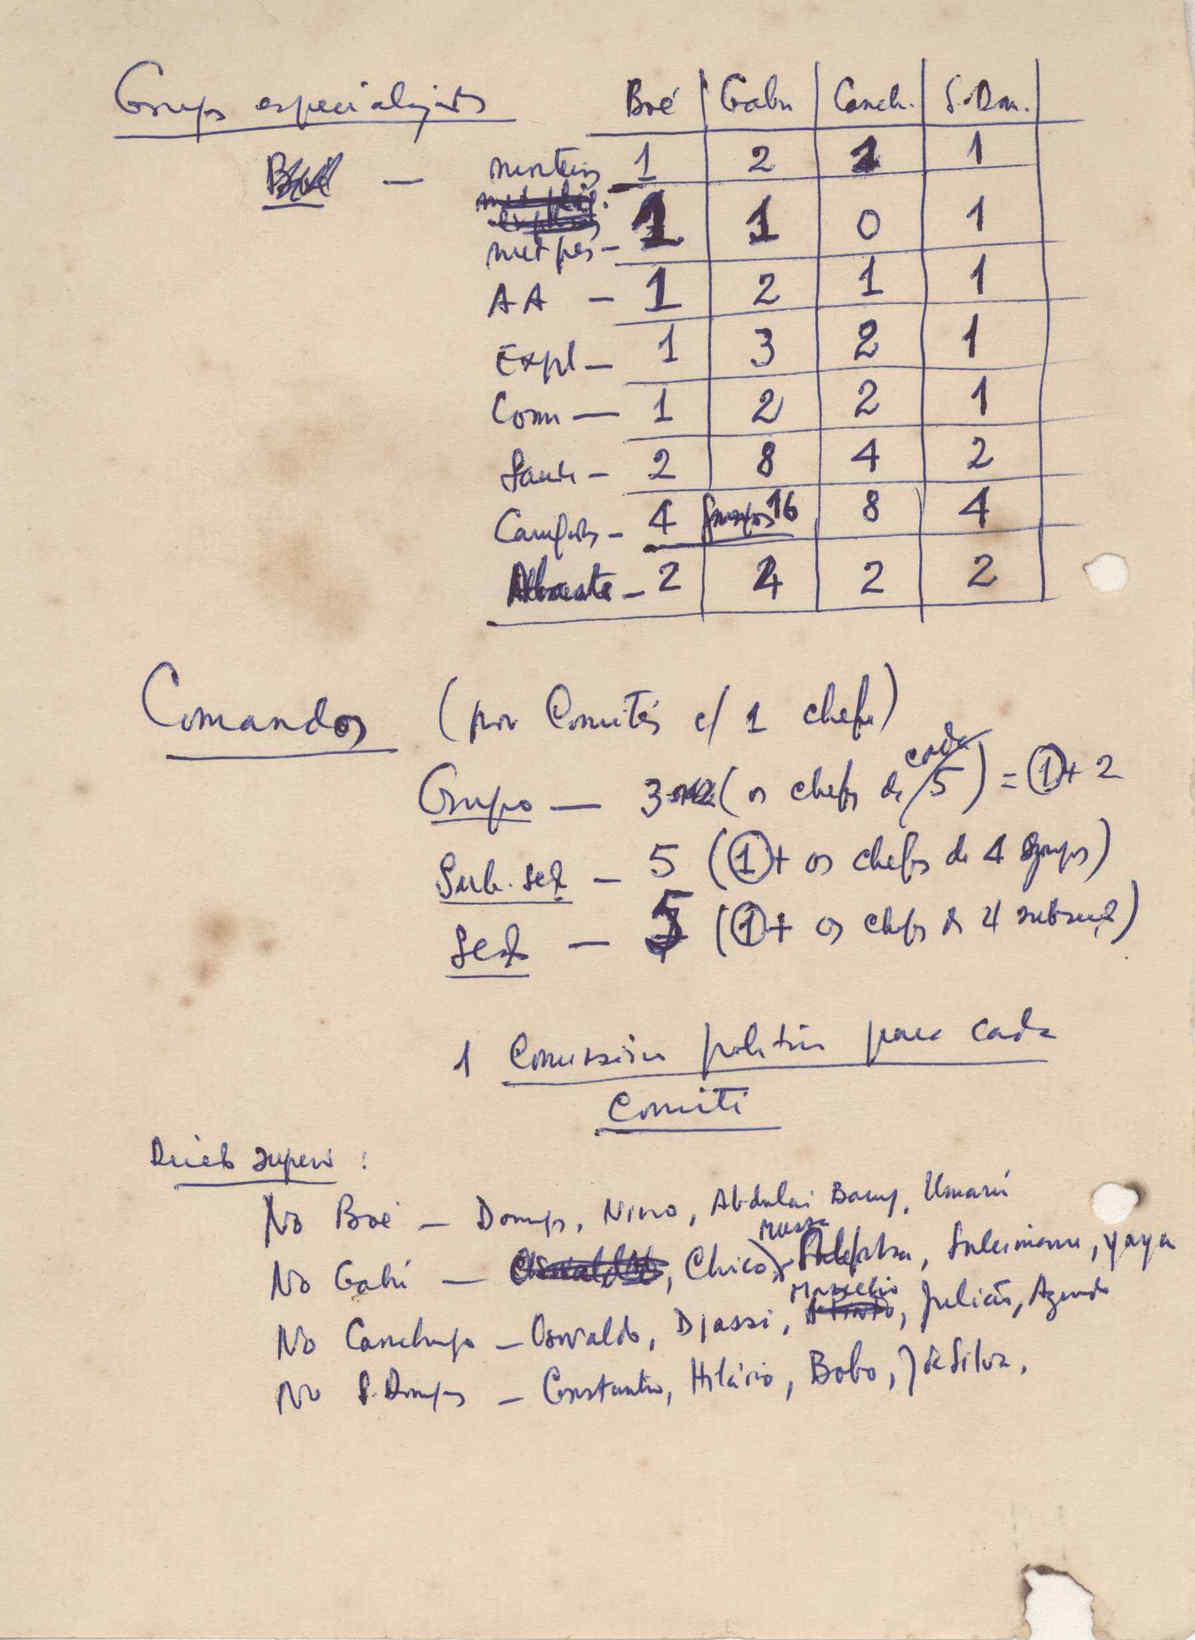 Grupos especializados
Boé Gabu Canch. S. Dom.
Boé — morteiros 1 2 1 1
met pes — 1 1 0 1
AA — 1 2 1 1
Expl — 1 3 2 1
Com — 1 2 2 1
Saude — 2 8 4 2
— 4 grupos 16 8 4
— 2 4 2 2
Comandos (por Comités c/ 1 chefe)
Grupo — 3 (os chefes de cada 5) = 1 + 2
Sub. secç — 5 (1 + os chefes de 4 grupos)
Secç — 5 (1 + os chefes de 4 subsecç)
1 Comissão política para cada
Comité
superior :
No Boé — Domingos, Nino, Abdulai Barry, Umarú
No Gabú — Osvaldo, Chico, Mussa, Suleimane, Yaya
No Canchungo — Osvaldo, Djassi, Marcelino, Julião, Agendo
No S. Domingos — Constantino, Hilário, Bobo, J da Silva.